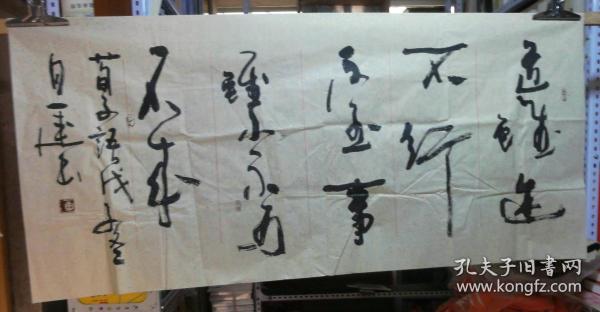 道雖迩
不行
不至事
雖小不為
不成
荀子語戊子冬
孔夫子旧书网
www.kongfz.com